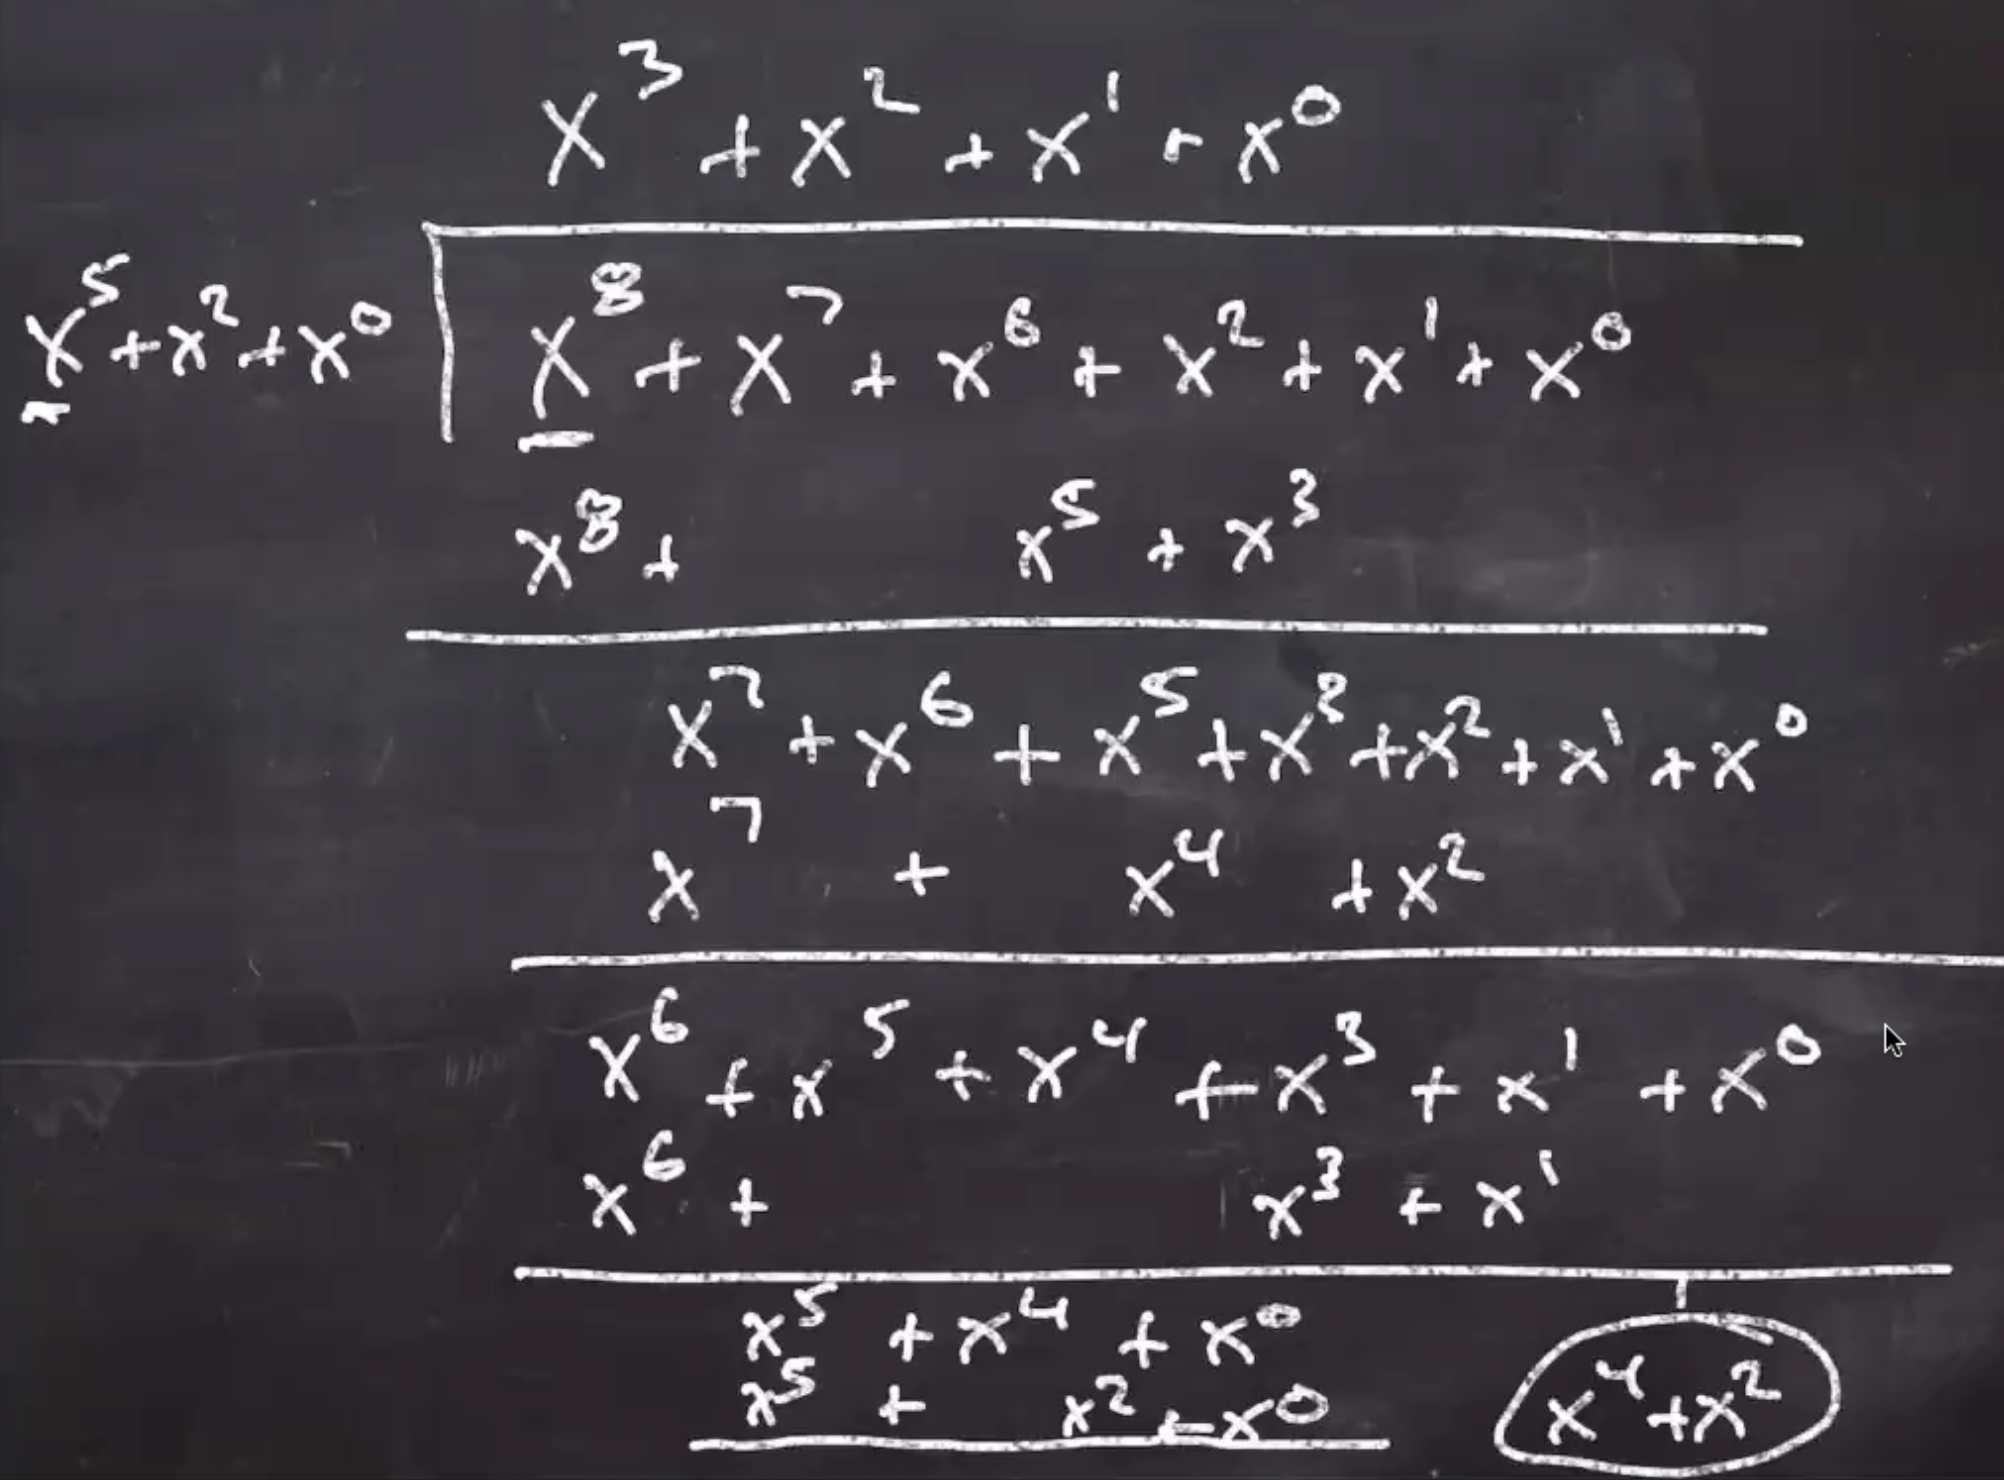 x³ + x² + x¹ + x⁰
x⁵ + x² + x⁰ x⁸ + x⁷ + x⁶ + x² + x¹ + x⁰
x⁸ + x⁵ + x³
x⁷ + x⁶ + x⁵ + x³ + x² + x¹ + x⁰
x⁷ + x⁴ + x²
x⁶ + x⁵ + x⁴ + x³ + x¹ + x⁰
x⁶ + x³ + x¹
x⁵ + x⁴ + x⁰
x⁵ + x² + x⁰
x⁴ + x²